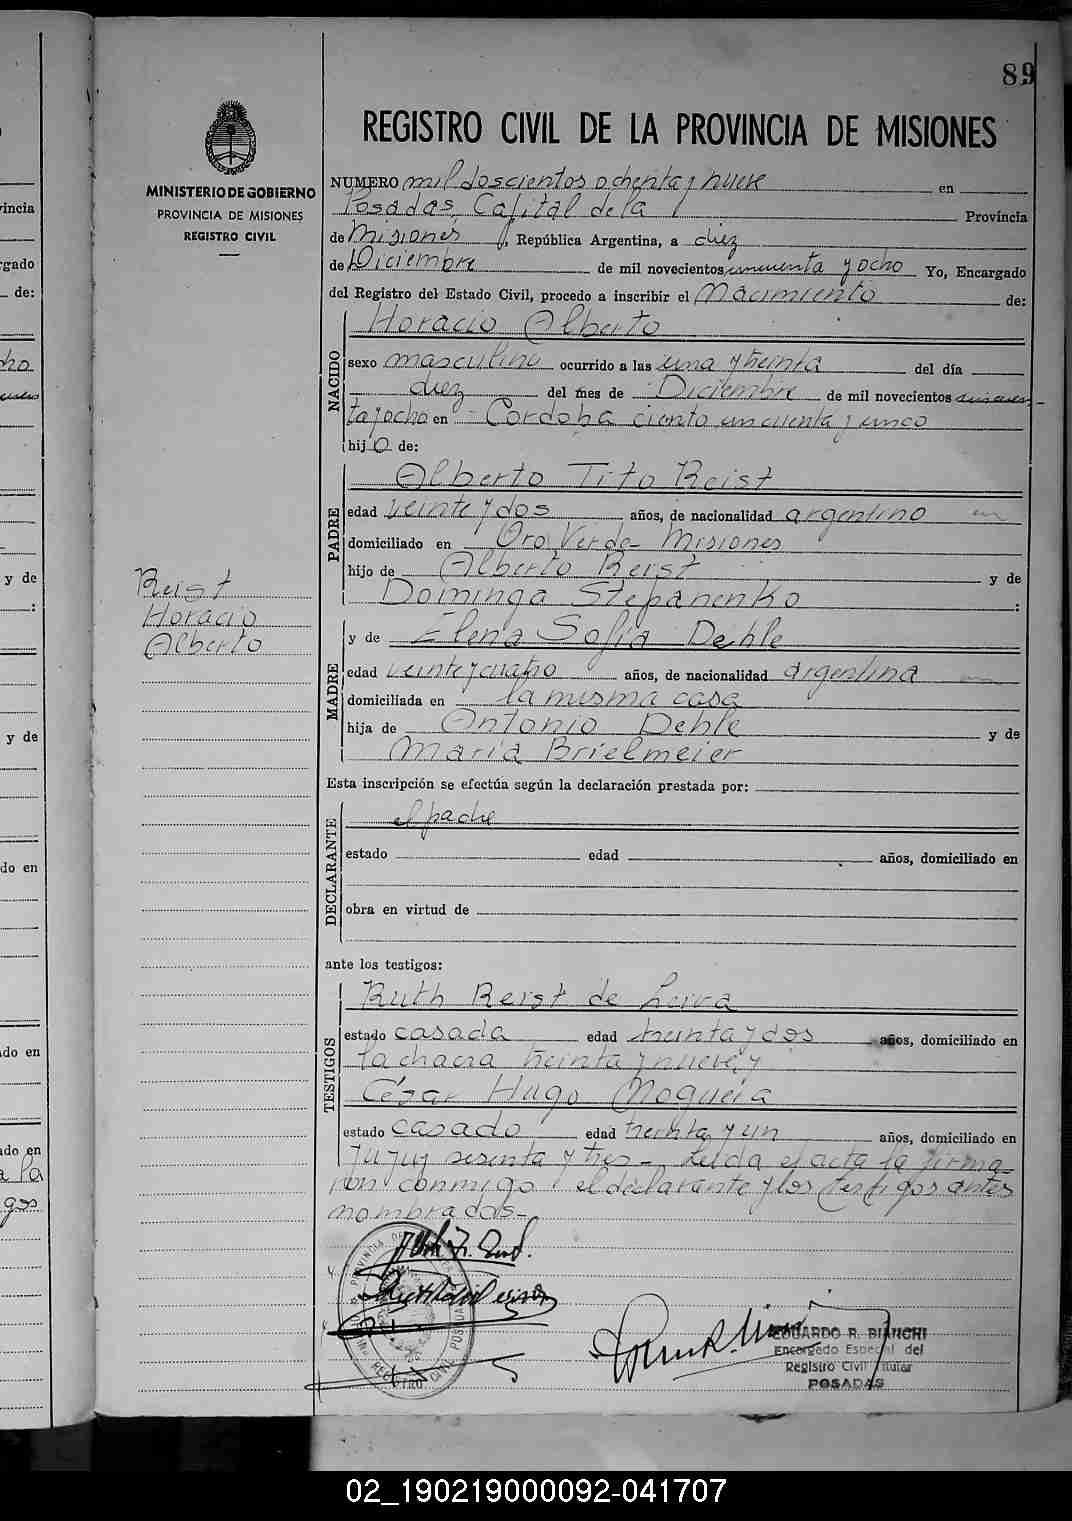 89
REGISTRO CIVIL DE LA PROVINCIA DE MISIONES
MINISTERIO DE GOBIERNO
PROVINCIA DE MISIONES
REGISTRO CIVIL
NUMERO mil doscientos ochenta y nueve en
Posadas, Capital de la Provincia
de Misiones, República Argentina, a diez
de Diciembre de mil novecientos cincuenta y ocho Yo, Encargado
del Registro del Estado Civil, procedo a inscribir el Nacimiento de:
NACIDO
Horacio Alberto
sexo masculino ocurrido a las una y treinta del día
diez del mes de Diciembre de mil novecientos cincuen-
ta y ocho en Cordoba ciento cincuenta y cinco
hijo de:
PADRE
Alberto Tito Reist
edad veinte y dos años, de nacionalidad argentino
domiciliado en Oro Verde - Misiones
hijo de Alberto Reist y de
Dominga Stepanenko :
MADRE
y de Elena Sofia Dehle
edad veinte y cuatro años, de nacionalidad argentina
domiciliada en la misma casa
hija de Antonio Dehle y de
Maria Brielmeier
Esta inscripción se efectúa según la declaración prestada por:
DECLARANTE
el padre
estado edad años, domiciliado en
obra en virtud de
ante los testigos:
TESTIGOS
Ruth Reist de Leiva
estado casada edad treinta y dos años, domiciliado en
la chacra treinta y nueve y
César Hugo Nogueia
estado casado edad treinta y un años, domiciliado en
Jujuy sesenta y tres - Leida el acta la firma-
ron conmigo el declarante y los testigos antes
nombrados -
Reist
Horacio
Alberto
EDUARDO R. BIANCHI
Encargado Especial del
Registro Civil Titular
POSADAS
02_190219000092-041707